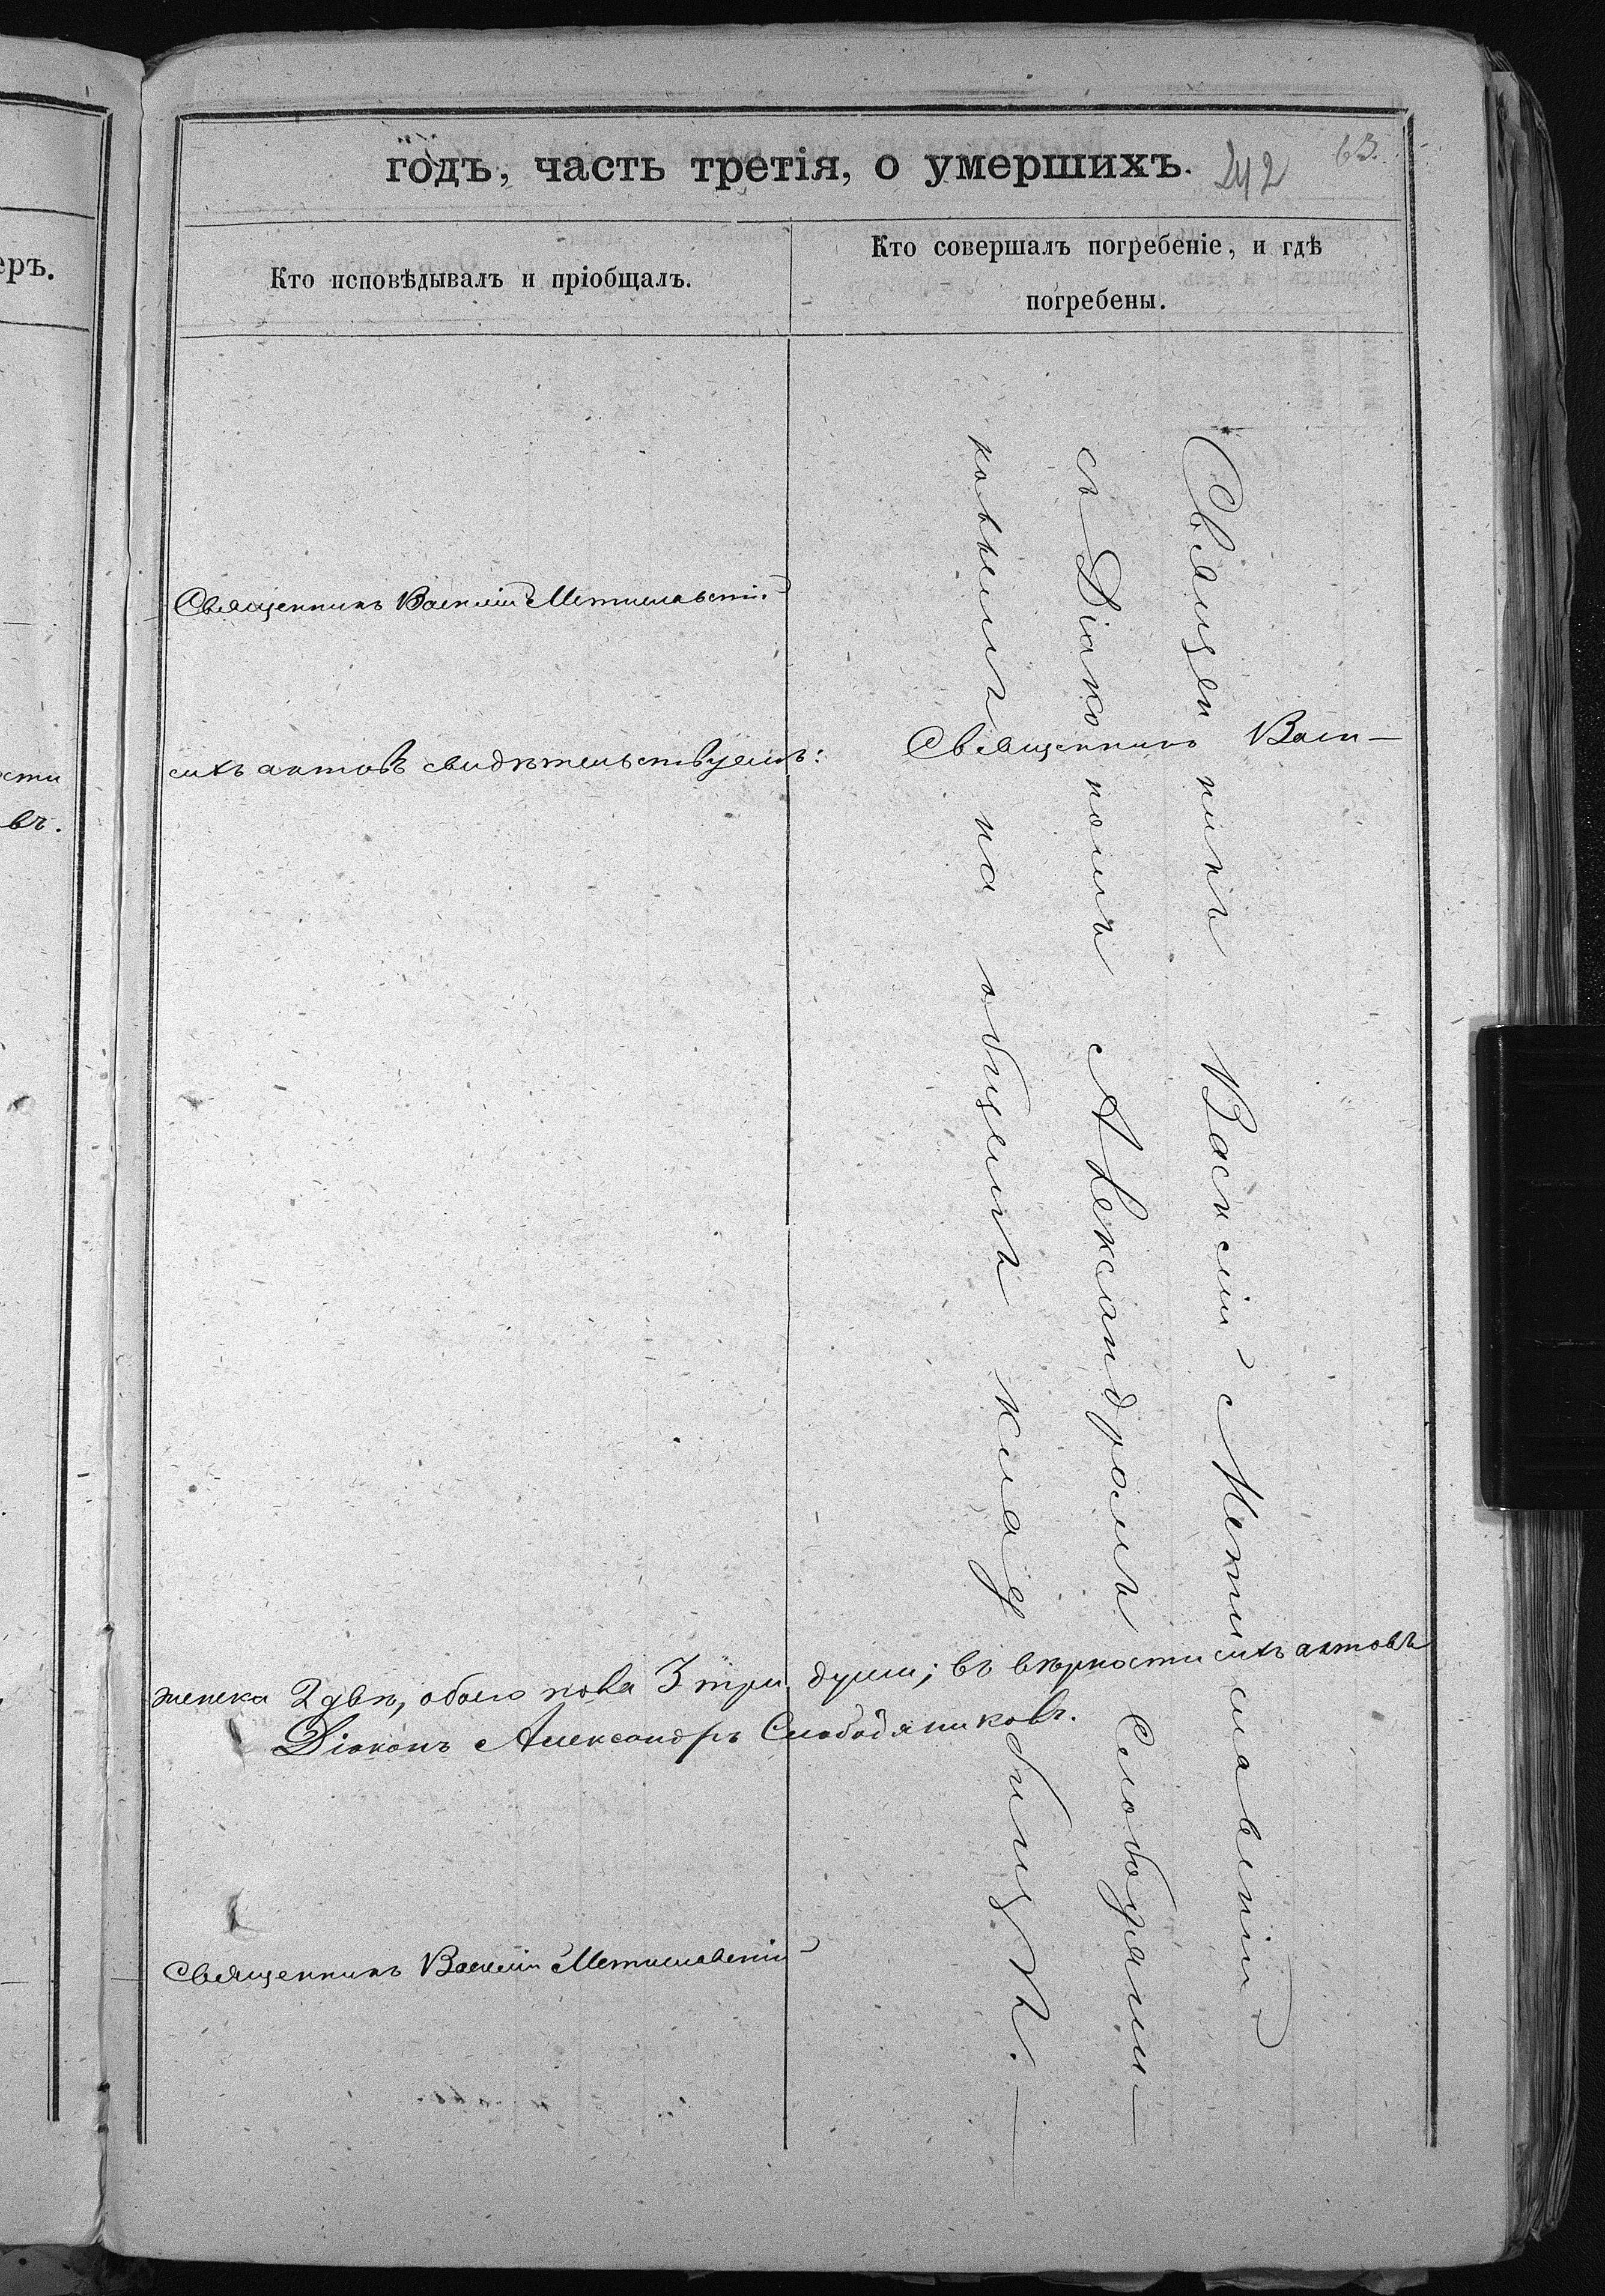 годъ, часть третія, о умершихъ. 242 63.
Кто исповѣдывалъ и пріобщалъ.
Кто совершалъ погребеніе, и гдѣ
погребены.
еръ.
Священникъ Василій Мстиславскій
сихъ актовъ свидѣтельствуемъ: Священникъ Васи-
въ.
Священникъ Василій Мстиславскій
съ Діакономъ Александромъ Слободяни-
ковымъ на общемъ кладбищѣ.
женска 2 двѣ, обоего пола 3 три души; въ вѣрности сихъ актовъ
Діаконъ Александръ Слободяниковъ.
Священникъ Василій Мстиславскій